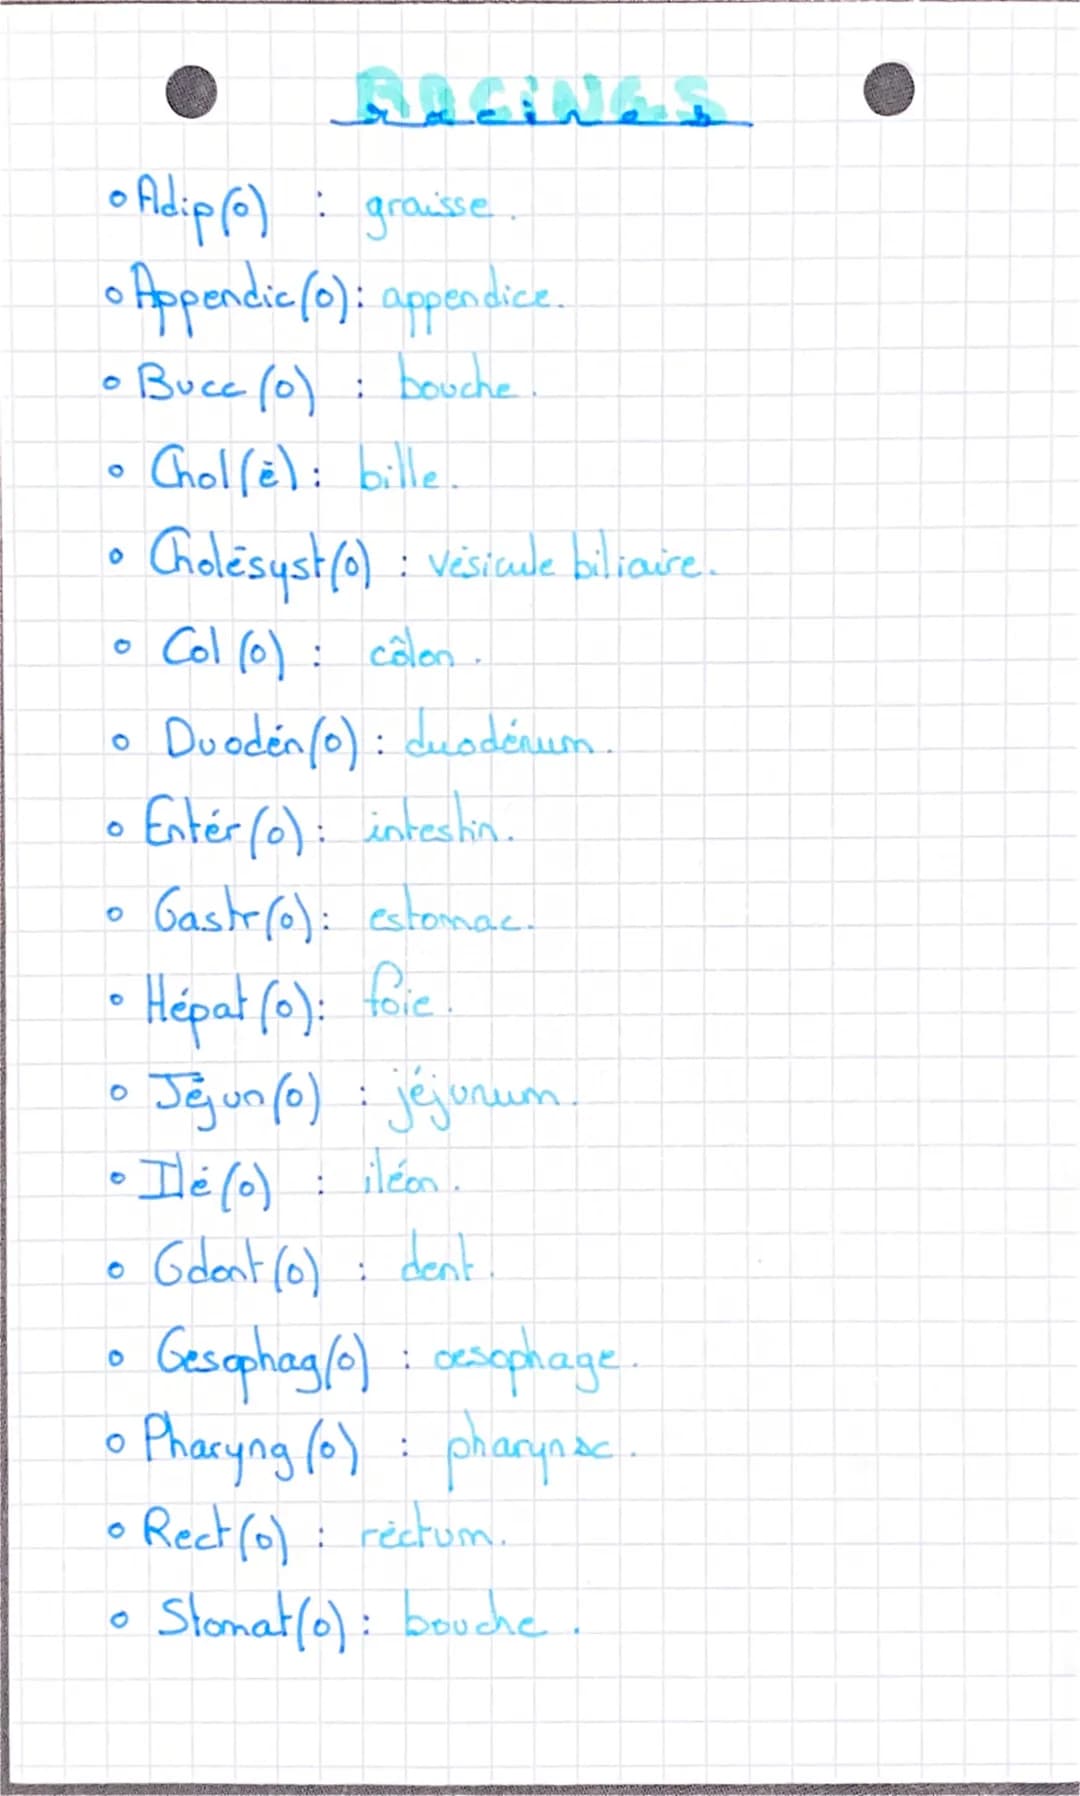 RACINES
Racines
Adip(o) : graisse.
Appendic(o) : appendice.
Bucc(o) : bouche.
Chol(é) : bille.
Cholésyst(o) : vésicule biliaire.
Col(o) : côlon.
Duodén(o) : duodénum.
Entér(o) : intestin.
Gastr(o) : estomac.
Hépat(o) : foie.
Jéjun(o) : jéjunum.
Ilé(o) : iléon.
Odont(o) : dent.
Oesophag(o) : oesophage.
Pharyng(o) : pharynx.
Rect(o) : réctum.
Stomat(o) : bouche.